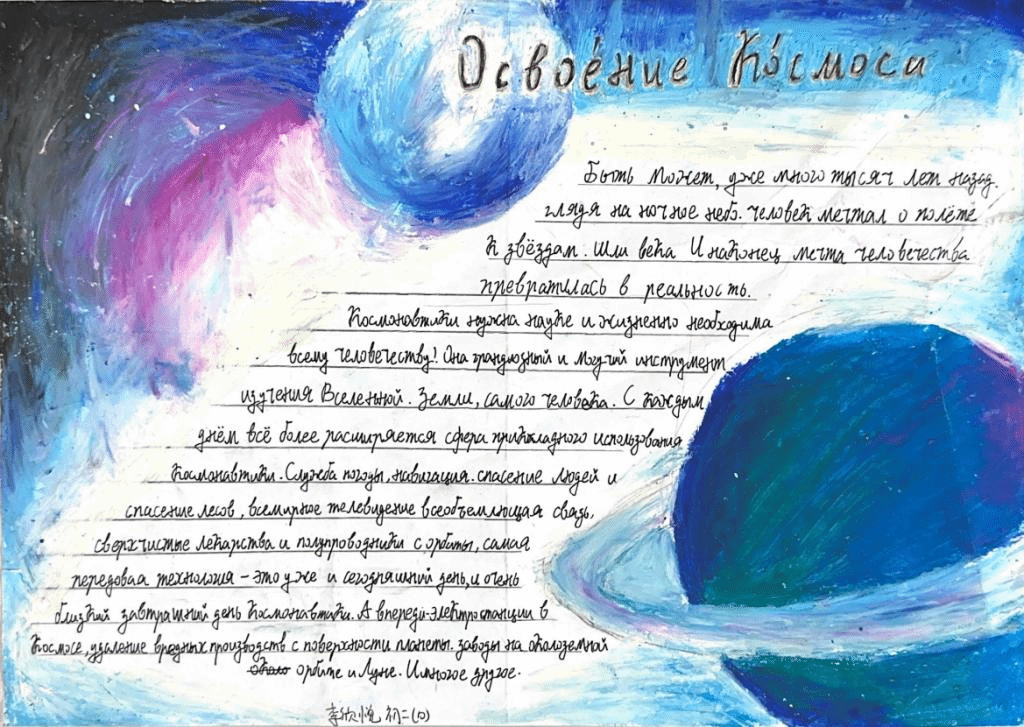 Освое́ние Ко́смоса
Быть может, уже много тысяч лет назад.
глядя на ночное небо. Человек мечтал о полёте
к звёздам. Шли века И наконец мечта человечества
превратилась в реальность.
Космонавтики нужна науке и жизненно необходима
всему человечеству! Она грандиозный и могучий инструмент
изучения Вселенной. Земли, самого человека. С каждым
днём всё более расширяется сфера прикладного использования
Космонавтики. Служба погоды, навигация. спасение людей и
спасение лесов, всемирное телевидение всеобъемлющая связь,
сверхчистые лекарства и полупроводники с орбиты, самая
передовая технология – это уже и сегодняшний день, и очень
близкий завтрашний день Космонавтики. А впереди-электростанции в
Космосе, удаление вредных производств с поверхности планеты. заводы на околоземной
орбите и Луне. И многое другое.
李欣悦 初二(10)